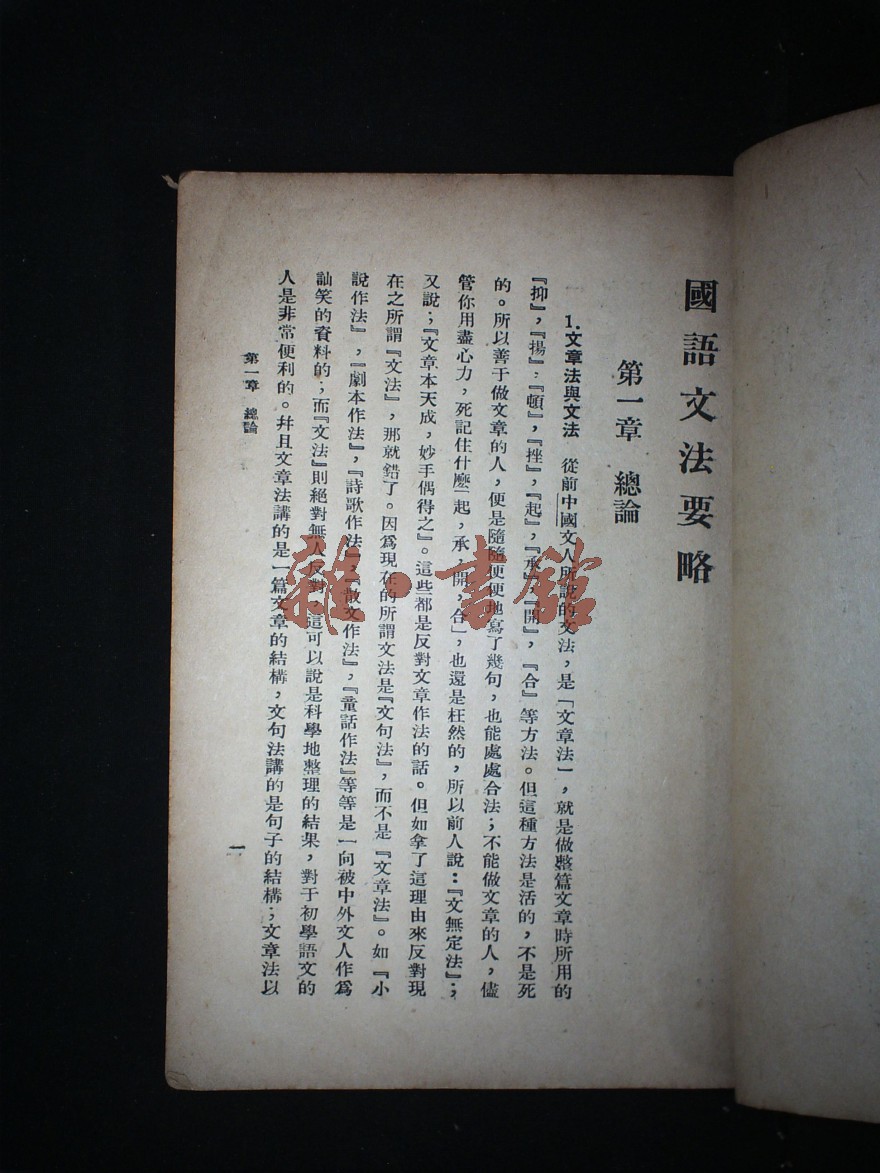 國語文法要略
第一章 總論
1.文章法與文法 從前中國文人所說的文法，是「文章法」，就是做整篇文章時所用的
『抑』，『揚』，『頓』，『挫』，『起』，『承』，『開』，『合』等方法。但這種方法是活的，不是死
的。所以善于做文章的人，便是隨隨便便地寫了幾句，也能處處合法；不能做文章的人，儘
管你用盡心力，死記住什麽「起，承，開，合」，也還是枉然的，所以前人說：『文無定法』；
又說；『文章本天成，妙手偶得之』。這些都是反對文章作法的話。但如拿了這理由來反對現
在之所謂『文法』，那就錯了。因爲現在的所謂文法是『文句法』，而不是『文章法』。如『小
說作法』，『劇本作法』，『詩歌作法』，『散文作法』，『童話作法』等等是一向被中外文人作爲
訕笑的資料的；而『文法』則絕對無人反對，這可以說是科學地整理的結果，對于初學語文的
人是非常便利的。幷且文章法講的是一篇文章的結構，文句法講的是句子的結構；文章法以
第一章 總論
一
雜·書館